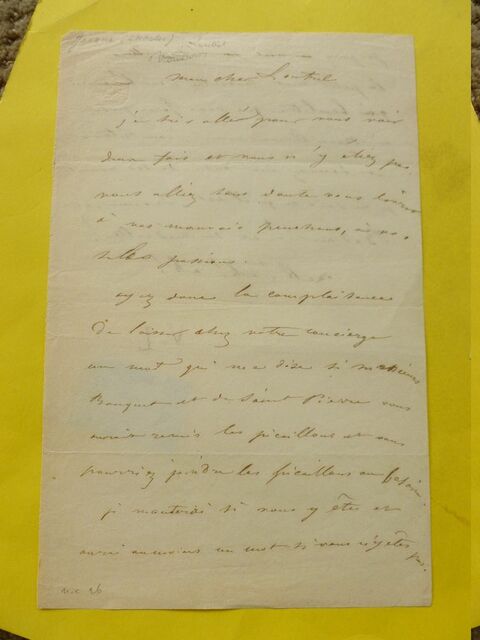 mon cher
je suis allé pour vous voir
deux fois et vous n'y étiez pas,
vous alliez sans doute vous livrer
à vos mauvais penchans, à vos
passions.
ayez donc la complaisance
de laisser chez votre concierge
un mot qui me dise si messieurs
Bouquet et de Saint Pierre vous
auront remis les picaillons et vous
pourriez joindre les picaillons au besoin.
je monterai si vous y êtes et
aurai au moins un mot si vous n'y êtes pas.